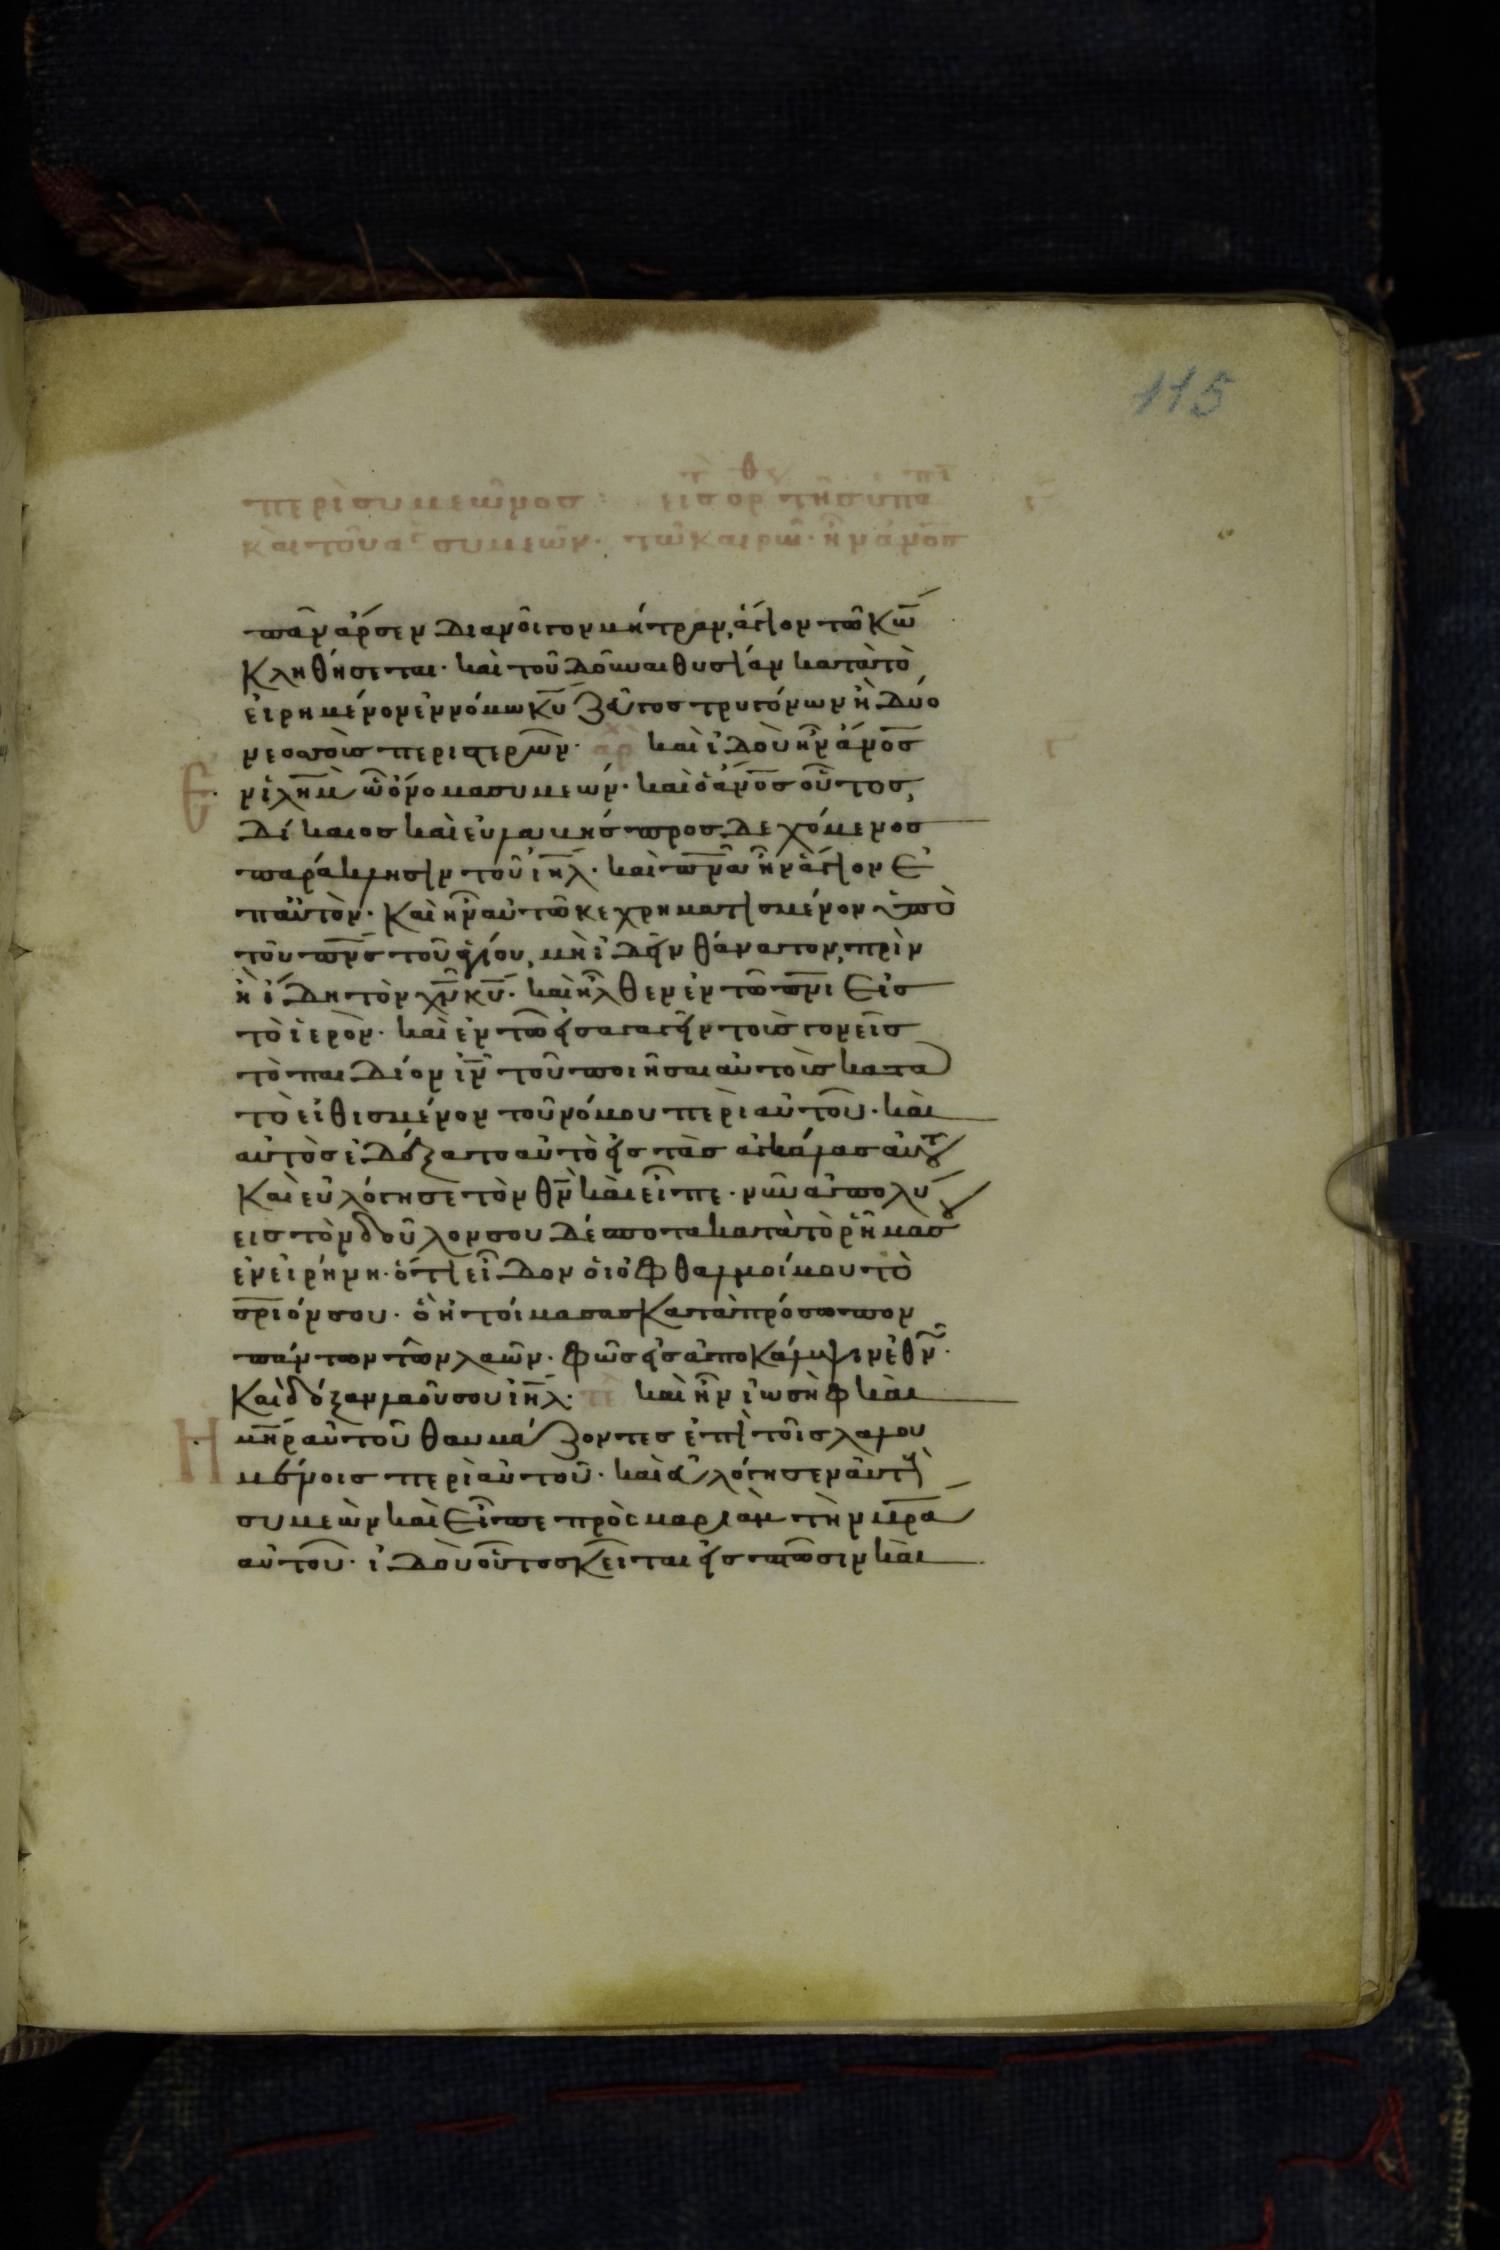 115
περὶ συμεῶνος:
καὶ τοῦ συμεών. τῶ καιρῶ. ἦν ἄνος
πᾶν ἄρσεν διανοῖγον μήτραν, ἅγιον τῶ κω
κληθήσεται. καὶ τοῦ δοῦναι θυσίαν κατὰ τὸ
εἰρημένον ἐν νόμω κυ ζεῦγος τρυγόνων ἢ δύο
νεοσσοὺς περιστερῶν. ἀρ καὶ ἰδοὺ ἦν ἄνος
ἐν ἰλημ ὧ ὄνομα συμεών. καὶ ὁ ἄνος οὗτος,
δίκαιος καὶ εὐλαβὴς προσδεχόμενος
παράκλησιν τοῦ ιηλ. καὶ πνα ἦν ἅγιον ἐ
π αὐτόν. καὶ ἦν αὐτῶ κεχρηματισμένον ὑπὸ
τοῦ πνς τοῦ ἁγίου, μὴ ἰδεῖν θάνατον, πρὶν
ἢ ἴδη τὸν χν κυ. καὶ ἦλθεν ἐν τῶ πνι εἰς
τὸ ἱερόν. καὶ ἐν τῶ εἰσαγαγεῖν τοὺς γονεῖς
τὸ παιδίον ιν τοῦ ποιῆσαι αὐτοὺς κατὰ
τὸ εἰθισμένον τοῦ νόμου περὶ αὐτοῦ. καὶ
αὐτὸς ἐδέξατο αὐτὸ εἰς τὰς ἀγκάλας αὐτοῦ
καὶ εὐλόγησε τὸν θν καὶ εἶπε. νῦν ἀπολύ
εις τὸν δοῦλον σου δέσποτα κατὰ τὸ ῥῆμά σου
ἐν εἰρήνη. ὅτι εἶδον οἱ ὀφθαλμοί μου τὸ
σριόν σου. ὃ ἡτοίμασας κατὰ πρόσωπον
πάντων τῶν λαῶν. φῶς εἰς ἀποκάλυψιν ἐθν.
καὶ δόξαν λαοῦ σου ιηλ. καὶ ἦν ἰωσὴφ καὶ
μηρ αὐτοῦ θαυμάζοντες ἐπὶ τοῖς λαλου
μένοις περὶ αὐτοῦ. καὶ εὐλόγησεν αὐτοὺς
συμεὼν καὶ εἶπε πρὸς μαριὰμ τὴν μρα
αὐτοῦ. ἰδοὺ οὗτος κεῖται εἰς πτῶσιν καὶ